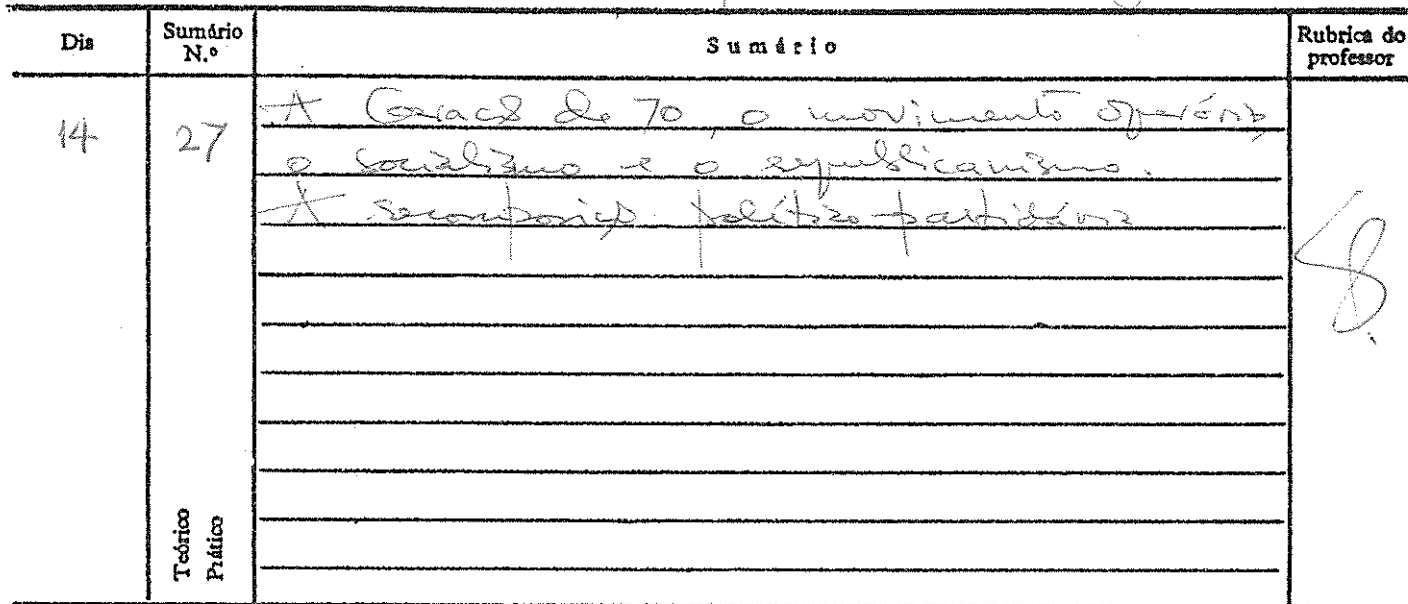 Dia Sumário N.º Sumário Rubrica do professor
14 27 A Geração de 70, o movimento operário
o socialismo e o republicanismo.
A recomposição político-partidária
Teórico
Prático